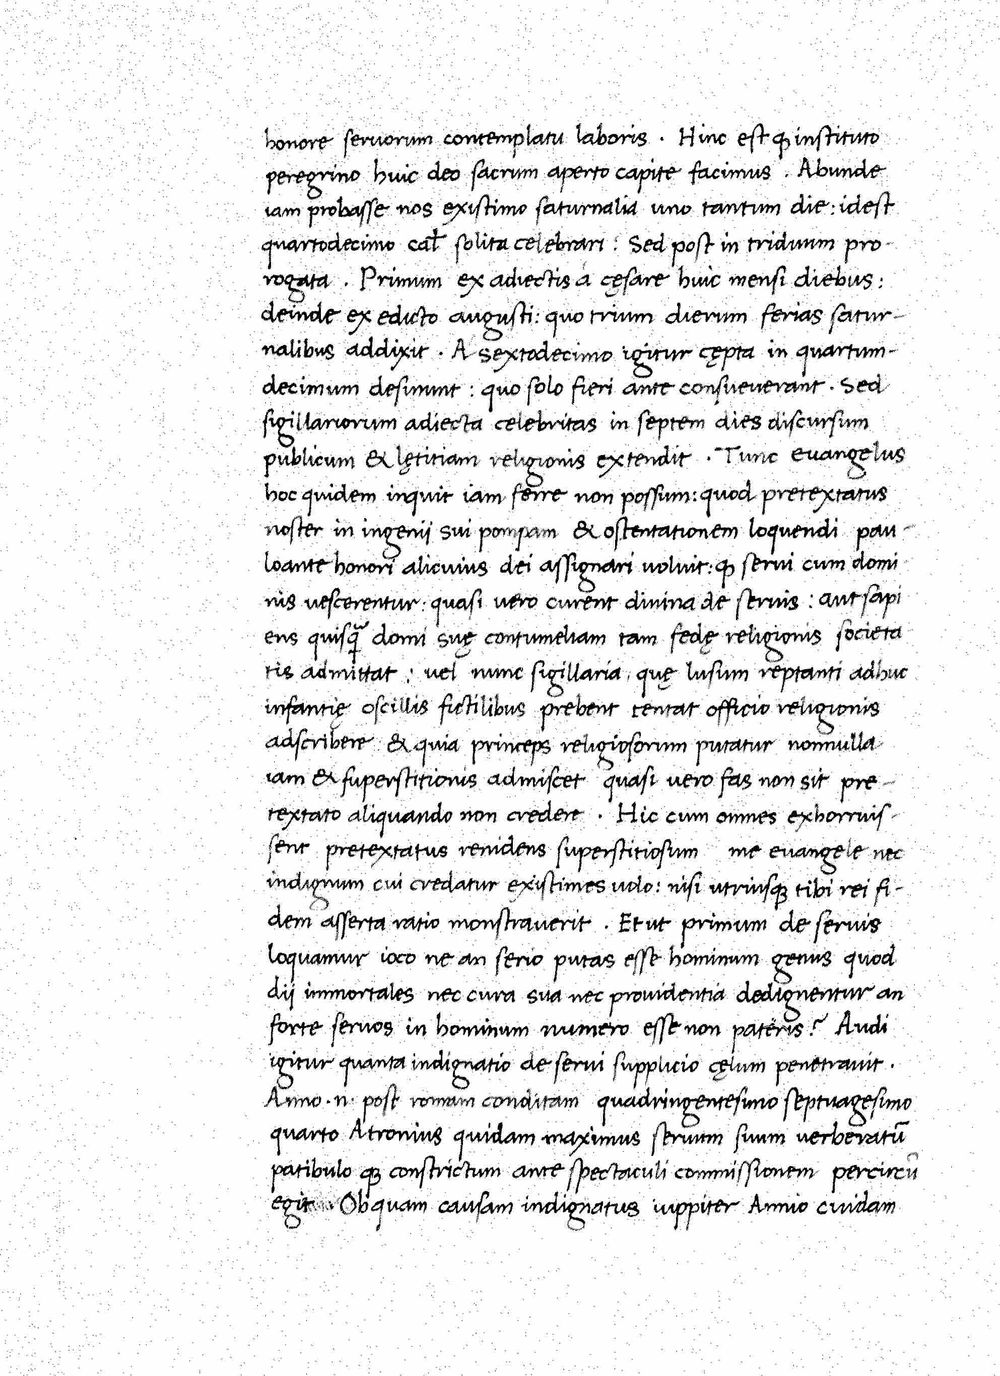 honore seruorum contemplatu laboris . Hinc est ꝙ instituto
peregrino huic deo sacrum aperto capite facimus . Abunde
iam probasse nos existimo saturnalia uno tantum die : idest
quartodecimo cal̄ solita celebrari : Sed post in triduum pro-
rogata . Primum ex adiectis á cęsare huic mensi diebus :
deinde ex edicto augusti : quo trium dierum ferias satur-
nalibus addixit . A sextodecimo igitur cępta in quartum-
decimum desinunt : quo solo fieri ante consueuerant . Sed
sigillariorum adiecta celebritas in septem dies discursum
publicum & lętitiam religionis extendit . Tunc euangelus
hoc quidem inquit iam ferre non possum : quod pretextatus
noster in ingenij sui pompam & ostentationem loquendi pau-
loante honori alicuius dei assignari uoluit : ꝙ serui cum domi
nis uescerentur : quasi uero curent diuina de seruis : aut sapi
ens quisꝗ̃ domi suę contumeliam tam fedę religionis societa
tis admittat : uel nunc sigillaria, quę lusum reptanti adhuc
infantię oscillis fictilibus prebent tentat officio religionis
adscribere & quia princeps religiosorum putatur nonnulla
iam & superstitionis admiscet quasi uero fas non sit pre-
textato aliquando non credere . Hic cum omnes exhorruis-
sent pretextatus renidens superstitiosum me euangele nec
indignum cui credatur existimes uolo : nisi utriusꝗ tibi rei fi-
dem asserta ratio monstrauerit . Et ut primum de seruis
loquamur ioco ne an serio putas esse hominum genus quod
dij immortales nec cura sua nec prouidentia dedignentur an
forte seruos in hominum numero esse non pateris ? Audi
igitur quanta indignatio de serui supplicio cęlum penetrauit .
Anno . n . post romam conditam quadringentesimo septuagesimo
quarto Atronius quidam maximus seruum suum uerberatū
patibulo ꝗ constrictum ante spectaculi commissionem percircū
egit . Ob quam causam indignatus iuppiter Annio cuidam